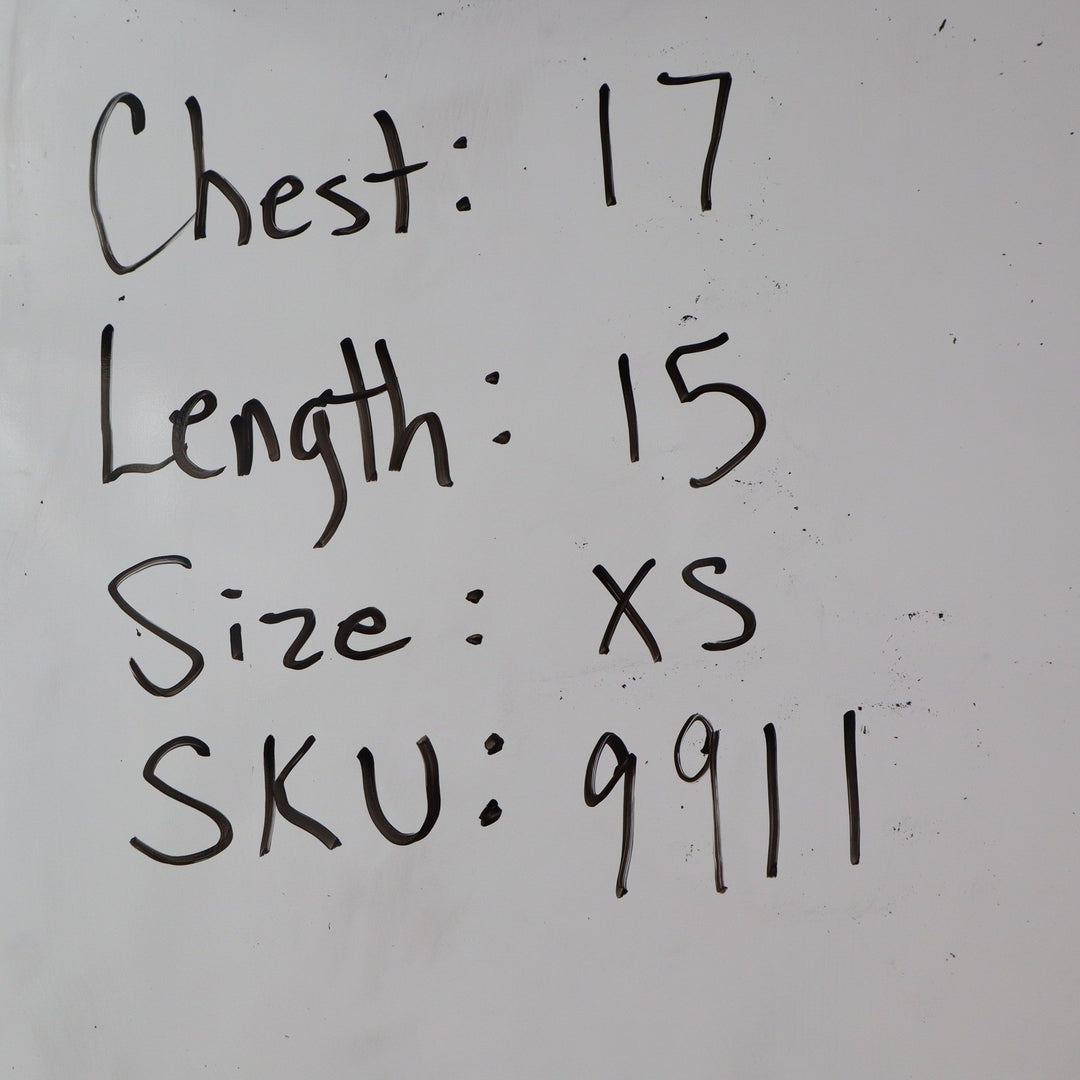 Chest: 17
Length: 15
Size: XS
SKU: 9911